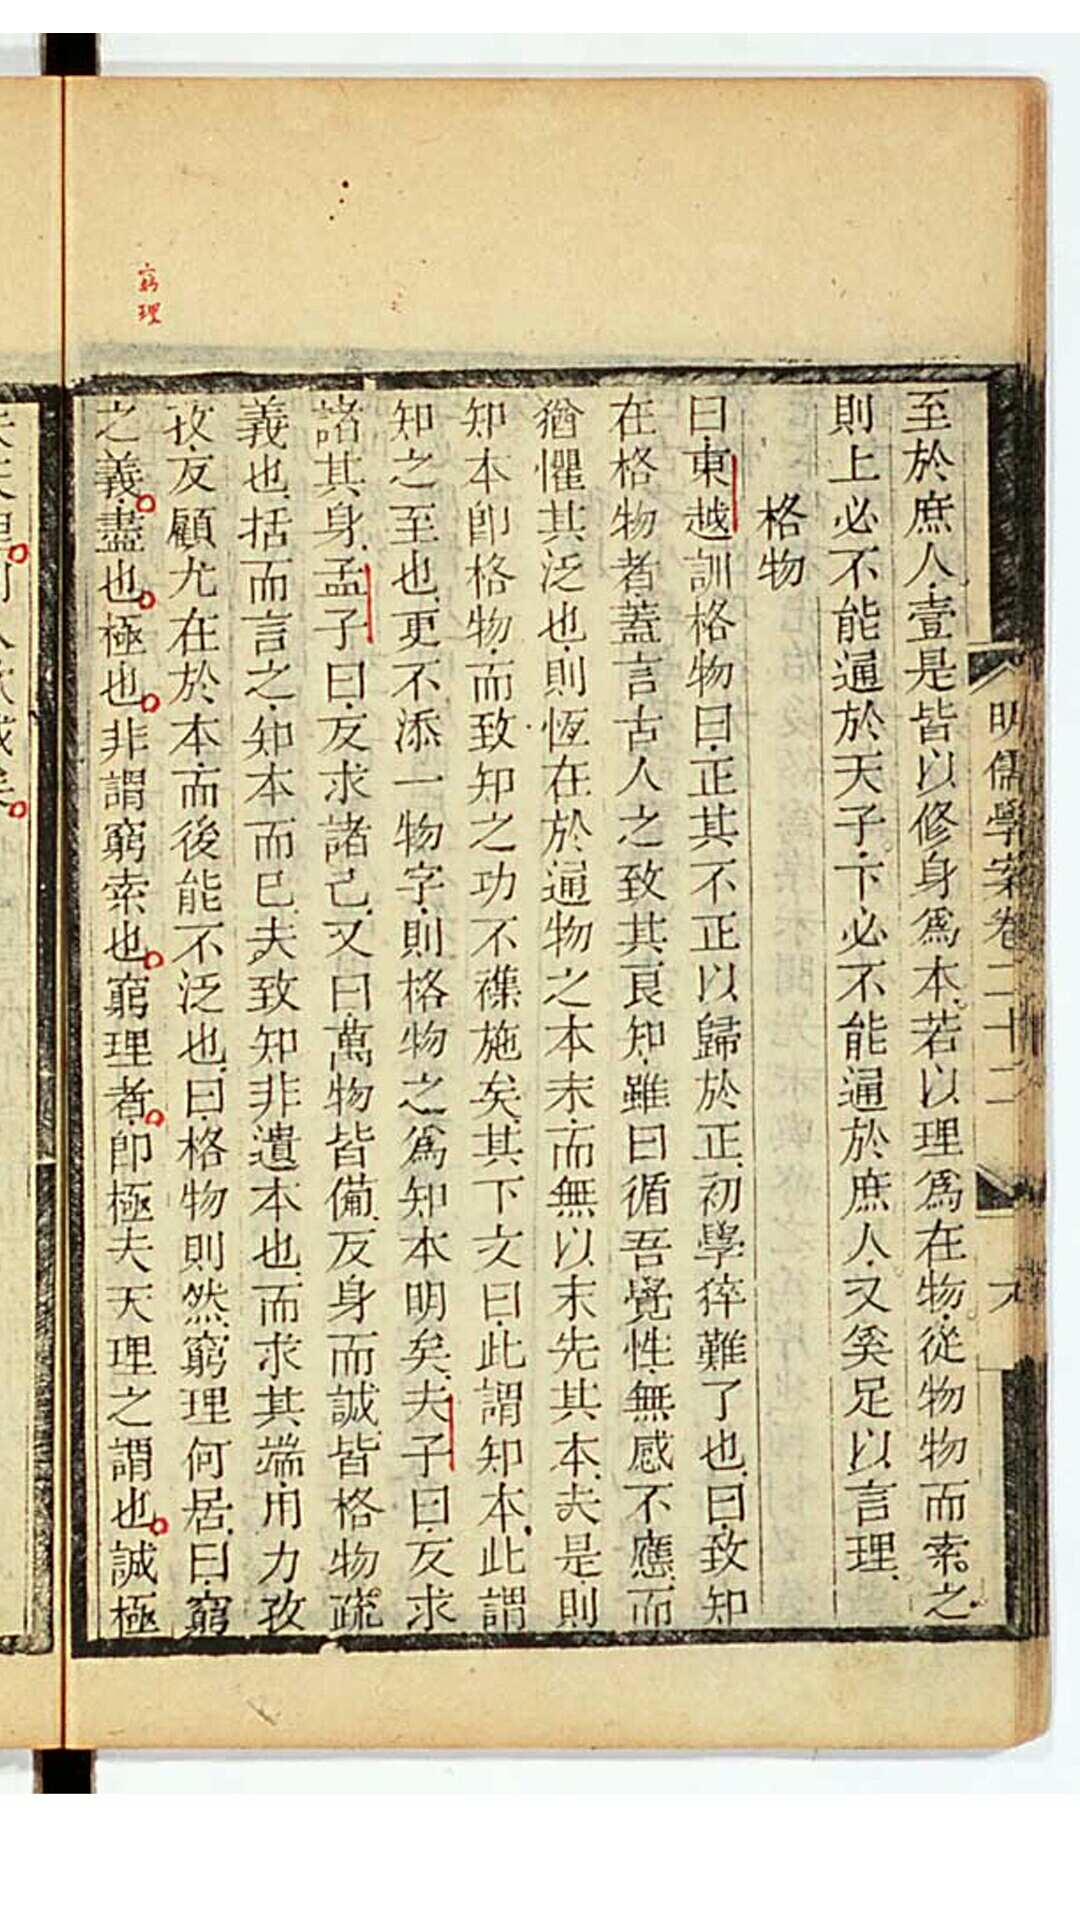 窮理
明儒學案卷二十二
至於庶人壹是皆以修身爲本若以理爲在物從物物而索之
則上必不能通於天子下必不能通於庶人又奚足以言理
格物
曰東越訓格物曰正其不正以歸於正初學猝難了也曰致知
在格物者蓋言古人之致其良知雖曰循吾覺性無感不應而
猶懼其泛也則恆在於通物之本末而無以末先其本夫是則
知本即格物而致知之功不襍施矣其下文曰此謂知本此謂
知之至也更不添一物字則格物之爲知本明矣夫子曰反求
諸其身孟子曰反求諸己又曰萬物皆備反身而誠皆格物疏
義也括而言之知本而已夫致知非遺本也而求其端用力孜
孜反顧尤在於本而後能不泛也曰格物則然窮理何居曰窮
之義盡也極也非謂窮索也窮理者即極夫天理之謂也誠極